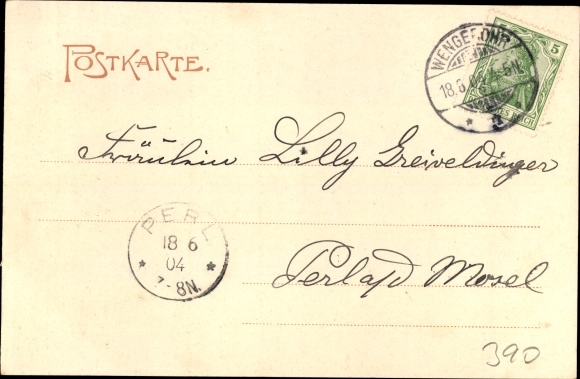 POSTKARTE.
WENGEROHR
18.6.04 4-5N.
a
5
DEUTSCHES REICH
Fräulein Lilly Greiveldinger
PERL
18 6
04
7-8N.
Perl a/d Mosel
390